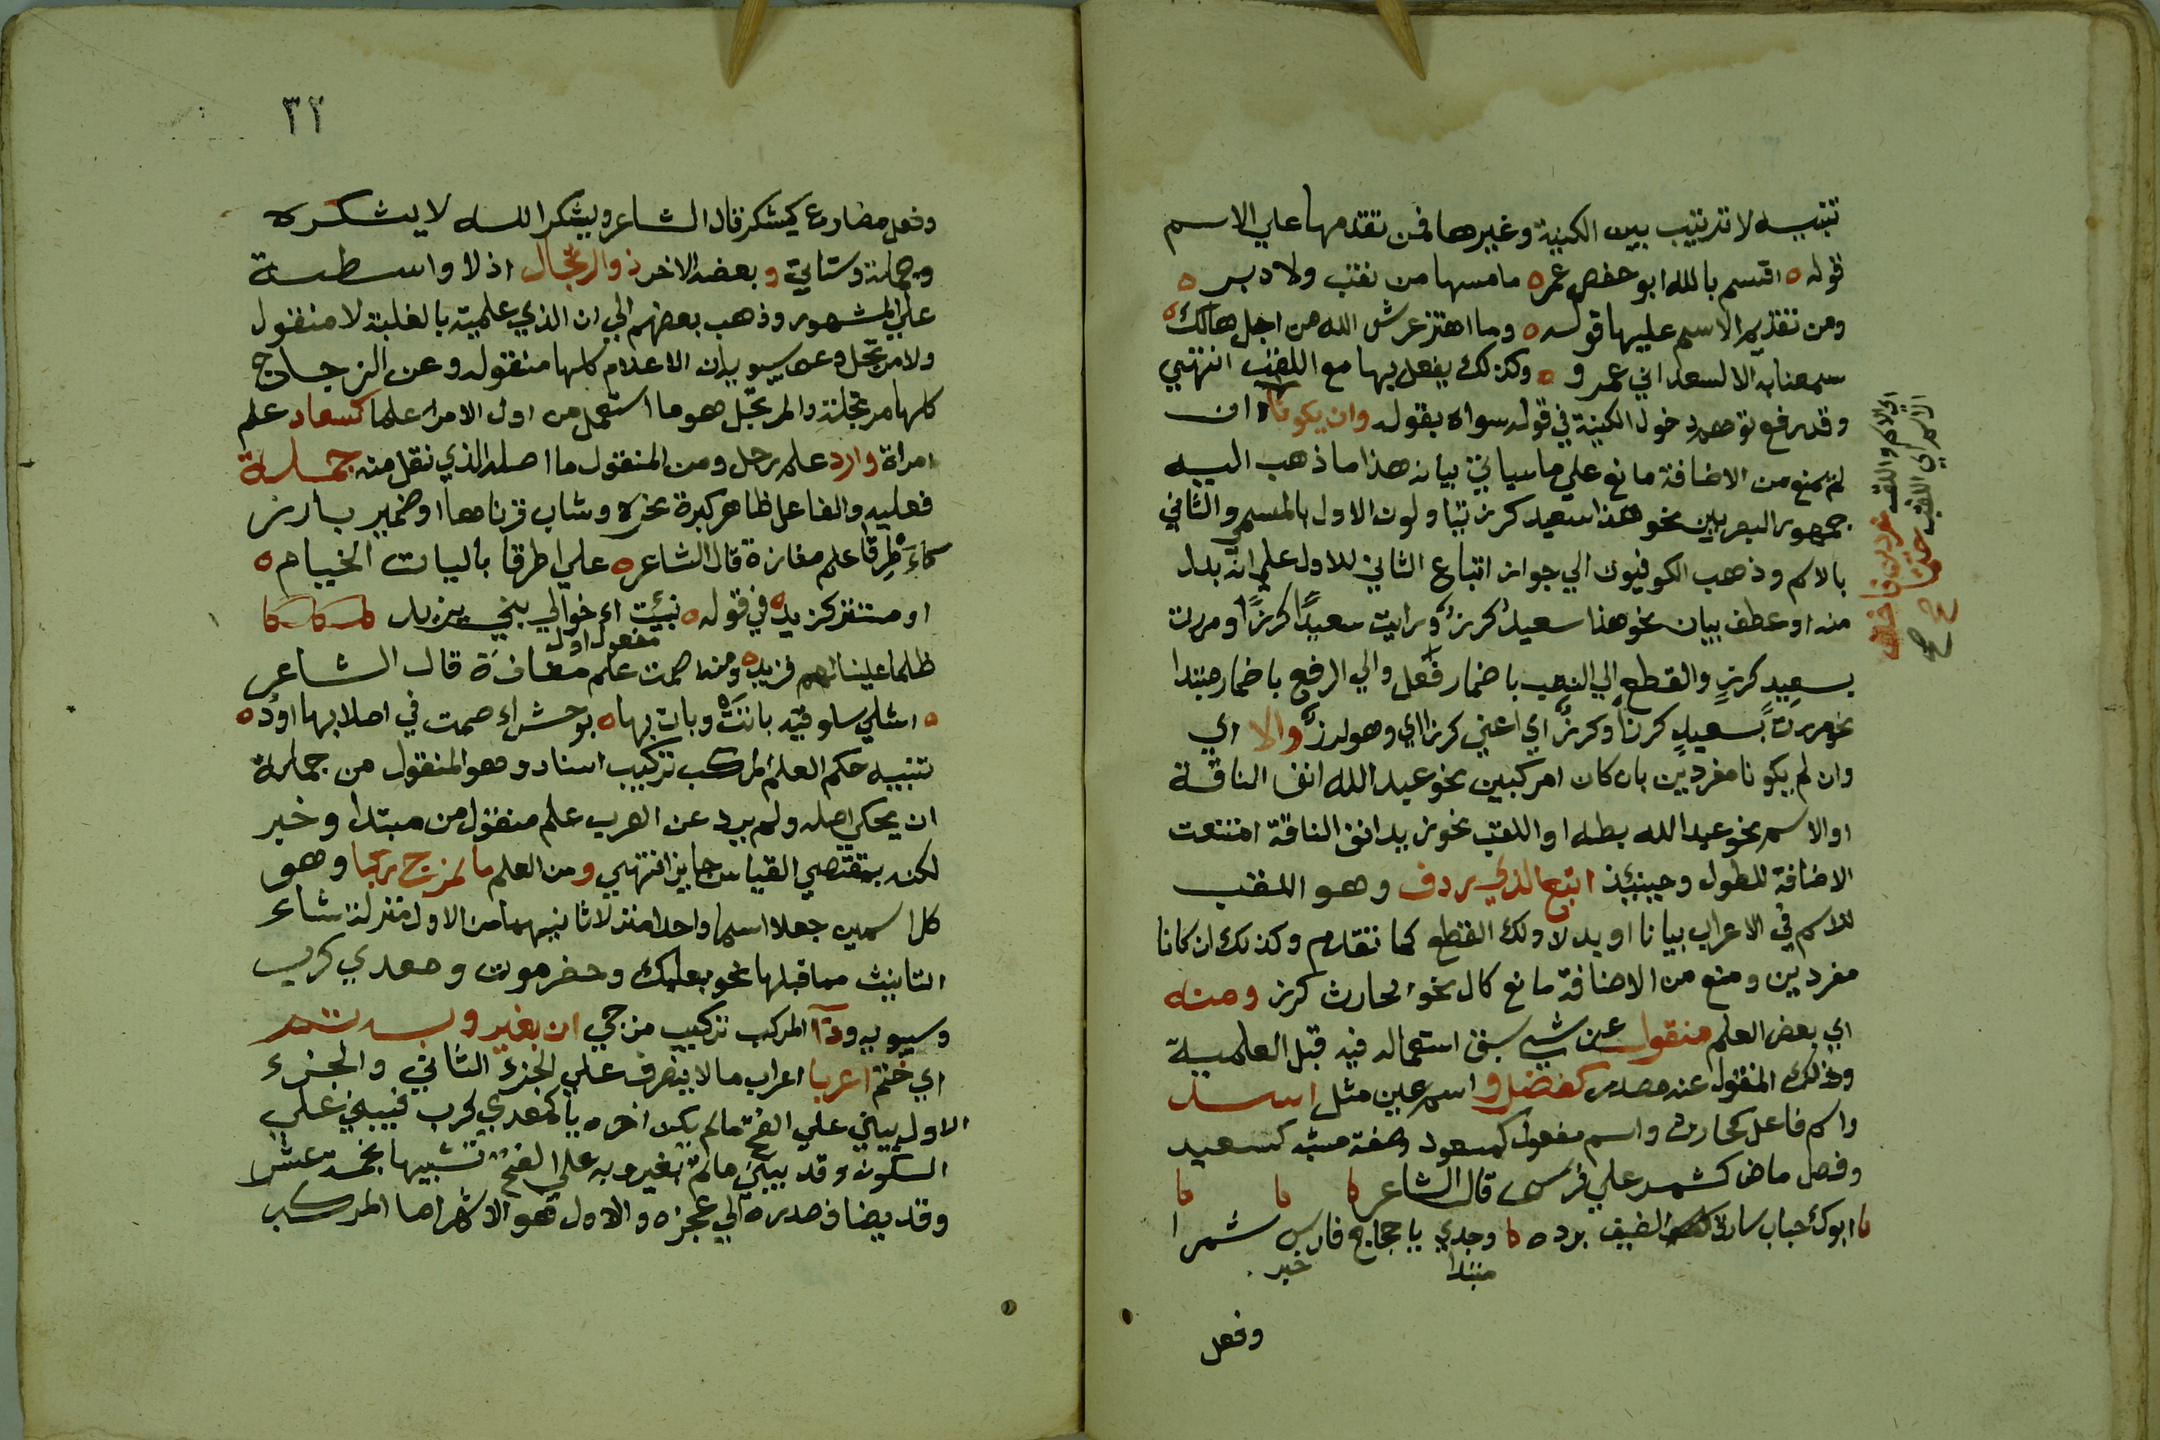 تنبيه لا ترتيب بين الكنية وغيرها فمن تقدمها علي الاسم
قوله ه اقسم بالله ابو حفص عمره ما مسها من نقب ولا دبر ه
ومن تقديم الاسم عليها قوله ه وما اهتز عرش الله من اجل هالك ه
سمعنا به الا لسعد ابي عمرو ه وكذلك يفعل بها مع اللقب انتهي
وقد رفع توهم دخول الكنية في قوله سواه بقوله وان يكونا ان
لم يمنع من الاضافة مانع علي ما سياتي بيانه هذا ما ذهب اليه
جمهور البصريين نحو هذا سعيد كرز يتاولون الاول بالمسمي والثاني
بالاسم وذهب الكوفيون الي جواز اتباع الثاني للاول علي انه بدل
منه او عطف بيان نحو هذا سعيدٌ كرزٌ ورايت سعيدًا كرزًا ومررت
بسعيدٍ كرزٍ والقطع الي النصب باضمار فعل والي الرفع باضمار مبتدا
نحو مررت بسعيدٍ كرزًا وكرزٌ اي اعني كرزا اي وهو كرزٌ والا اي
وان لم يكونا مفردين بان كان امركبين نحو عبد الله انف الناقة
او الاسم نحو عبد الله بطه او اللقب نحو زيد انف الناقة امتنعت
الاضافة للطول وحينئذ اتبع الذي ردف وهو اللقب
للاسم في الاعراب بيانا او بدلا ولك القطع كما تقدم وكذلك ان كانا
مفردين ومنع من الاضافة مانع كال نحو الحارث كرز ومنه
اي بعض العلم منقول عن شي سبق استعماله فيه قبل العلمية
وذلك المنقول عنه مصدر كفضل و اسم عين مثل اسد
واسم فاعل كحارث واسم مفعول كمسعود وصفة مشبه كسعيد
وفعل ماض كشمر علي فرس قال الشاعر
ابوك حباب سارق الضيف برده وجدي يا حجاج فارس شمرا
مبتدا خبر
وفعل
اي الاسم واللقب مفردين فاضف
الاسم الي اللقب حتما صح
٣٢
وفعل مضارع كيشكر قال الشاعر ويشكر الله لا يشكره
وجملة وستاتي و بعضه الاخر ذو ارتجال اذ لا واسطة
علي المشهور وذهب بعضهم الي ان الذي علميته بالغلبة لا منقول
ولا مرتجل وعن سيبويه ان الاعلام كلها منقوله وعن الزجاج
كلها مرتجلة والمرتجل هو ما استعمل من اول الامر علما كسعاد علم
امراة وادد علم رجل ومن المنقول ما اصله الذي نقل منه جملة
فعليه والفاعل ظاهر كبرق نحره وشاب قرناها او ضمير بارز
كاَطرِقا علم مفازة قال الشاعر ه علي اطرقا باليات الخيام ه
او مستتر كيزيد في قوله ه نبئت اخوالي بني يزيد
مفعول اول
ظلما علينا لهم فديد ه ومنه اصمت علم مفازة قال الشاعر
ه اشلي سلوقية باتت وبات بها ه بوحش اصمت في اصلابها اود ه
تنبيه حكم العلم المركب تركيب اسناد وهو المنقول من جملة
ان يحكي اصله ولم يرد عن العرب علم منقول من مبتدا وخبر
لكنه بمقتضي القياس جايز انتهي و من العلم ما بمزج ركبا وهو
كل اسمين جعلا اسما واحدا منزلا ثانيهما من الاول منزلة تاء
التانيث مما قبلها نحو بعلبك وحضرموت ومعدي كرب
وسيبويه وذا المركب تركيب مزجي ان بغير ويه تم
اي ختم اعربا اعراب ما لا ينصرف علي الجزء الثاني والجزء
الاول يبني علي الفتح ما لم يكن اخره يا كمعدي كرب فيبني علي
السكون وقد يبني ما تم بغير ويه علي الفتح تشبيها بخمسة عشر
وقد يضاف صدره الي عجزه والاول هو الاشهر اما المركب